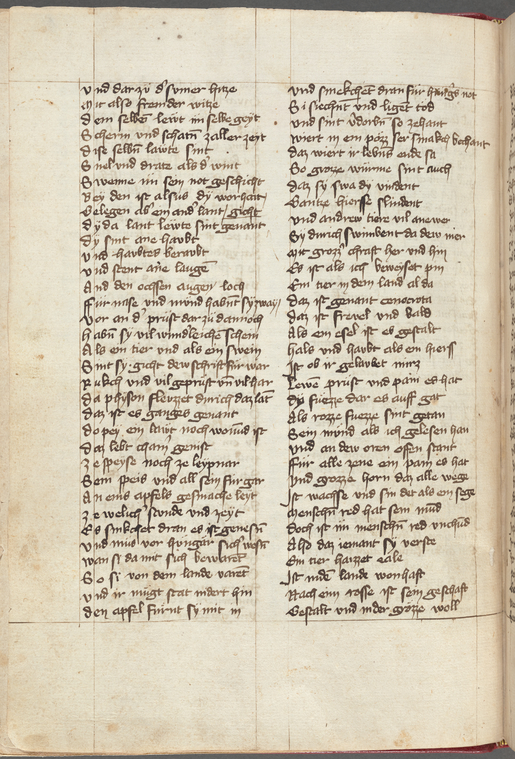 Vnd dar zů d' sumer hitze
Mit also fromder witze
Dem selben lewt im selbe geyt
Scherm und schatn zaller zeyt
Dise selbn lawte sint
Snel und drate als d' wint
Swenne im sein not geschicht
Bey den ist alsus dy worhait
Belegen ab ein and' lant / gicht
Dy da lant lewte sint genant
Dy sint ane haubt
Vnd haubtes beraubt
Vnd stent ane laugen
And den ochsen augen loch
Fur nase und mund habnt sy zway
Vor an d' prust dar zu dannoch
Habn sy vil wundleiche schein
Als ein tier und als ein swein
Sint sy gicht dew schrift fur war
Rukch und vil geprust vn vil har
Da physon flewzzet durich daz lant
Daz ist es ganges genant
Do pey ein lawt noch wonud ist
Daz lebt cham genist
Ze speyse noch ze leypnar
Sein speis und all sein fur gar
An eins apfels gesmache leyt
Ze welich stunde und zeyt
Es smkchet dran es ist genesn
Vnd mus vor hungar sich wesn
Wan si da mit sich bewaret
So si von dem lande varet
Vnd ir mugt stat indert hin
Den apfel furnt sy mit in
Vnd smekchet dran für hung's not
Si siechnt und liget tod
Vnd sint v'dorbn so zehant
Wiert in ein pözz ser smakch bechant
Daz wiert ir lebns ende sa
So grozze würme sint auch
Daz sy swa dy vindent
Gantze hiersse slindent
Vnd andrew tiere vil anewer
Sy durich swimbent da dew mer
Mit grozz' chraft her und hin
Es ist als ich beweyset pin
Ein tier in dem land al da
Daz ist genant cencrota
Daz ist frewel und bald
Als ein esel ist es gestalt
Hals und haubt als ein hiers
Ist ob ir gelaubet mirz
Lewen prust und pain es hat
Dy fuezze dar es auff gat
Als rozze fuezze sint getan
Sein mund als ich gelesen han
Vnd an dew oren offen stant
Für alle zene ein pain es hat
Vnd grozze horn daz alle wege
Ist wachse und snidet als ein sege
Menschen red hat sein mud
Doch ist im menschn red unchud
Also daz iemant sy verste
Ein tier haizzet eale
Ist inde lande wonhaft
Nach ein rosse ist sein geschaft
Gestalt und inder grözze woll